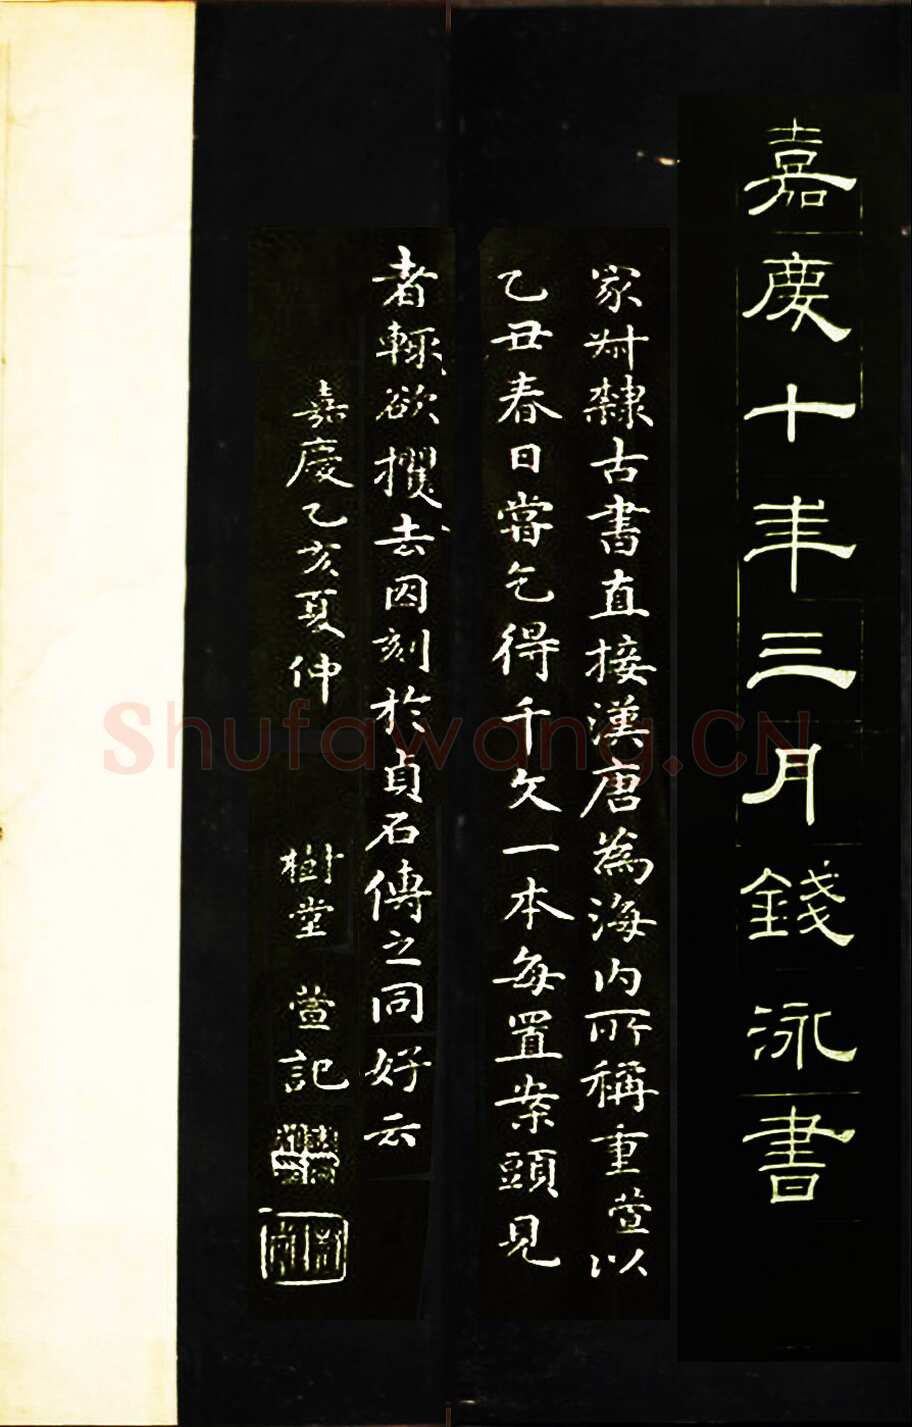 嘉慶十年三月錢泳書
家尗隸古書直接漢唐為海內所稱重萱以
乙丑春日嘗乞得千文一本每置案頭見
者輒欲攫去因刻於貞石傳之同好云
嘉慶乙亥夏仲 樹堂 萱記
Shufawang.CN